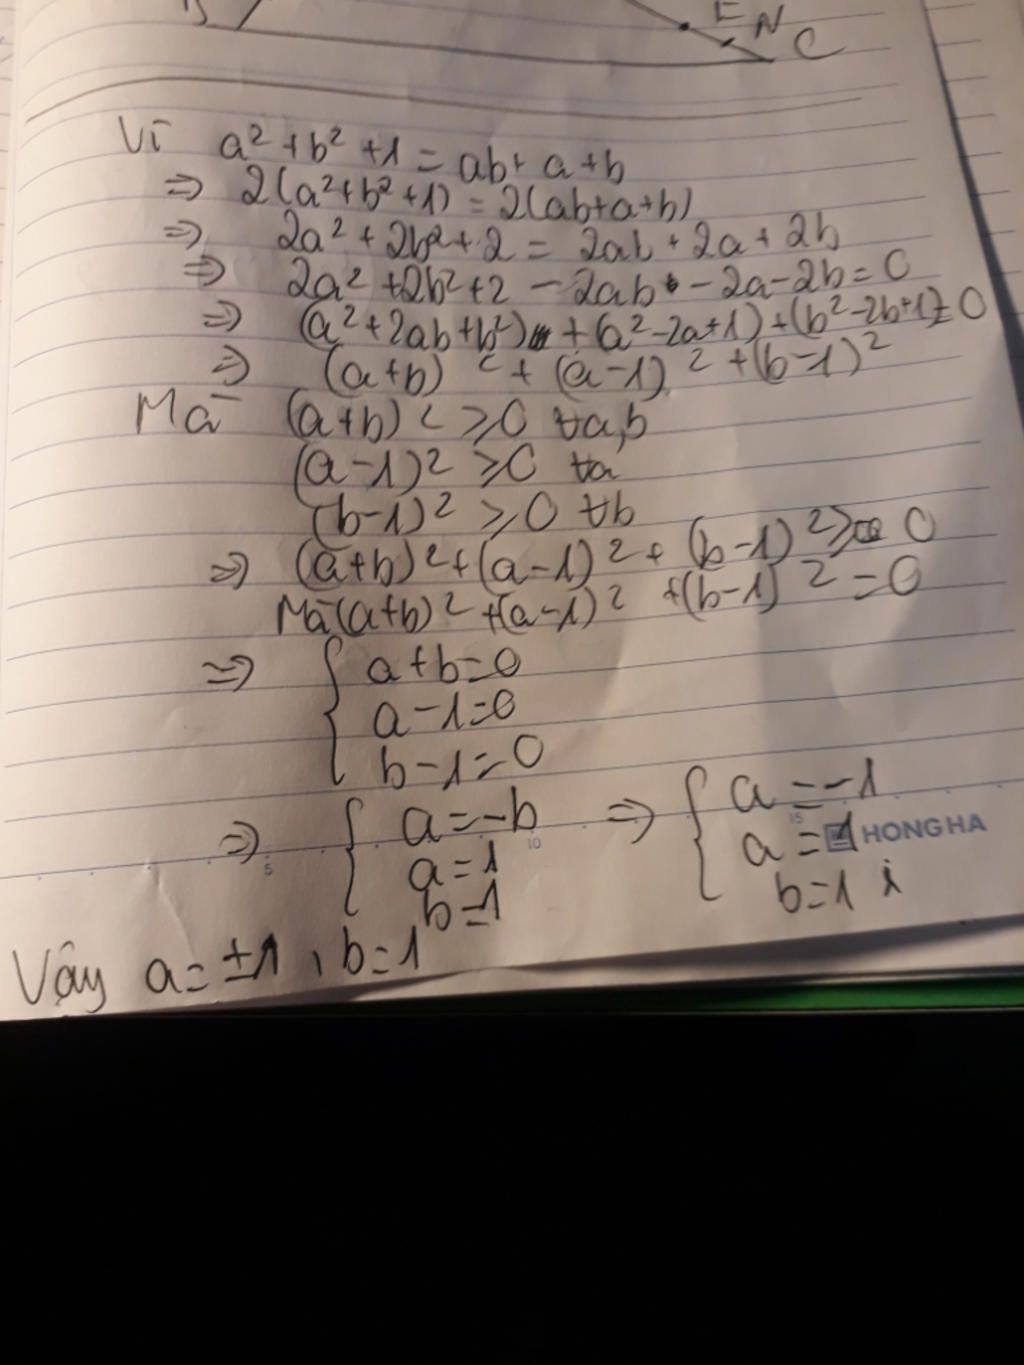 E N C
Vì a² + b² + 1 = ab + a + b
⇒ 2(a² + b² + 1) = 2(ab + a + b)
⇒ 2a² + 2b² + 2 = 2ab + 2a + 2b
⇒ 2a² + 2b² + 2 - 2ab - 2a - 2b = 0
⇒ (a² + 2ab + b²) + (a² - 2a + 1) + (b² - 2b + 1) = 0
⇒ (a + b)² + (a - 1)² + (b - 1)²
Mà (a + b)² ≥ 0 ∀a,b
(a - 1)² ≥ 0 ∀a
(b - 1)² ≥ 0 ∀b
⇒ (a + b)² + (a - 1)² + (b - 1)² ≥ 0
Mà (a + b)² + (a - 1)² + (b - 1)² = 0
⇒ { a + b = 0
a - 1 = 0
b - 1 = 0
⇒ { a = -b ⇒ { a = -1
a = 1 a = 1
b = 1 b = 1
5 10 15 HONG HA
Vậy a = ±1, b = 1